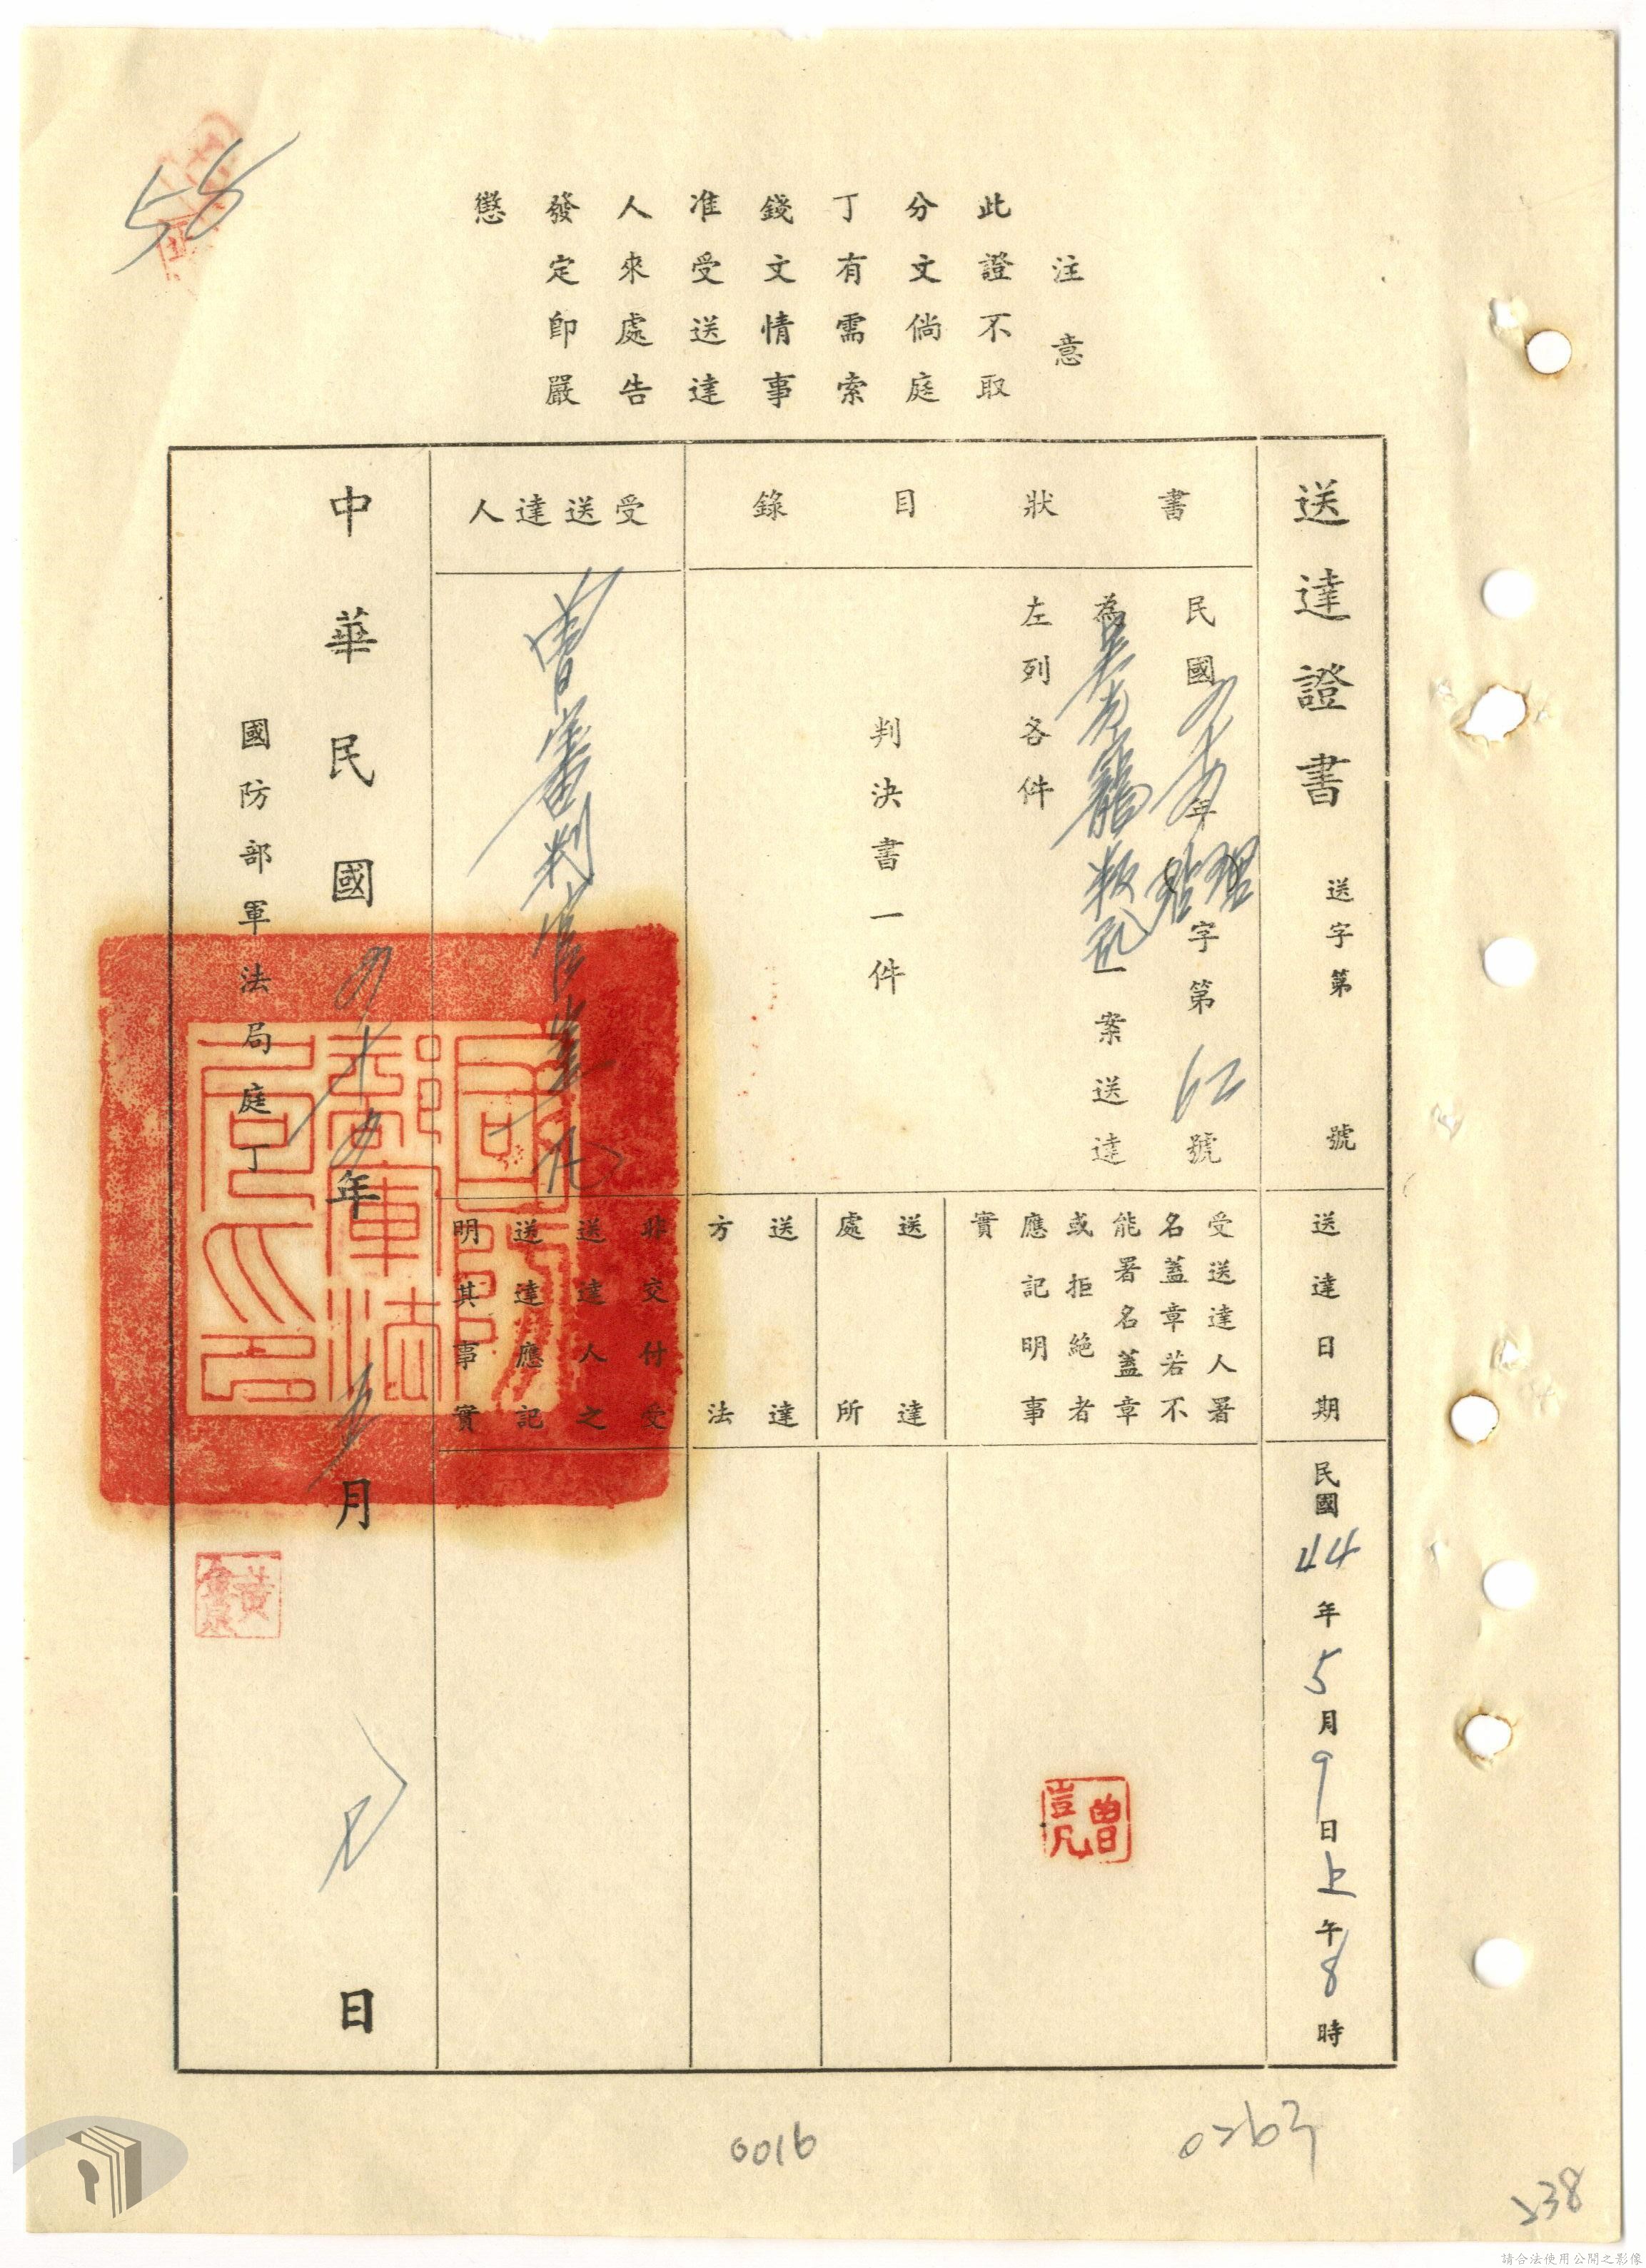 58
注意
此證不取
分文倘庭
丁有需索
錢文情事
准受送達
人來處告
發定即嚴
懲
送達證書 送字第 號
送達日期
民國44年5月9日上午8時
書狀目錄
民國四十四年理字第62號
為吳龍叛亂一案送達
左列各件
判決書一件
受送達人署
名蓋章若不
能署名蓋章
或拒絕者
應記明事
實
曾豈凡
送達
處所
送達
方法
受送達人
曾審判官豈凡
非交付受
送達人之
送達應記
明其事實
中華民國四十四年五月 日
國防部軍法局庭丁
黃
0016
0263
238
請合法使用公開之影像